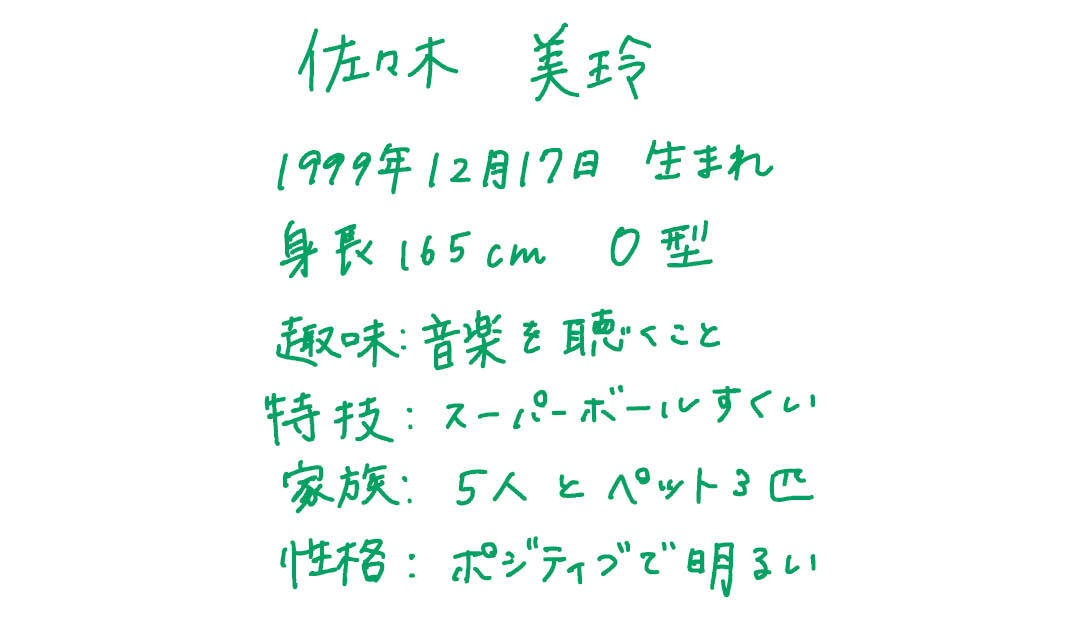 佐々木 美玲
1999年12月17日 生まれ
身長165cm O型
趣味:音楽を聴くこと
特技:スーパーボールすくい
家族:5人とペット3匹
性格:ポジティブで明るい